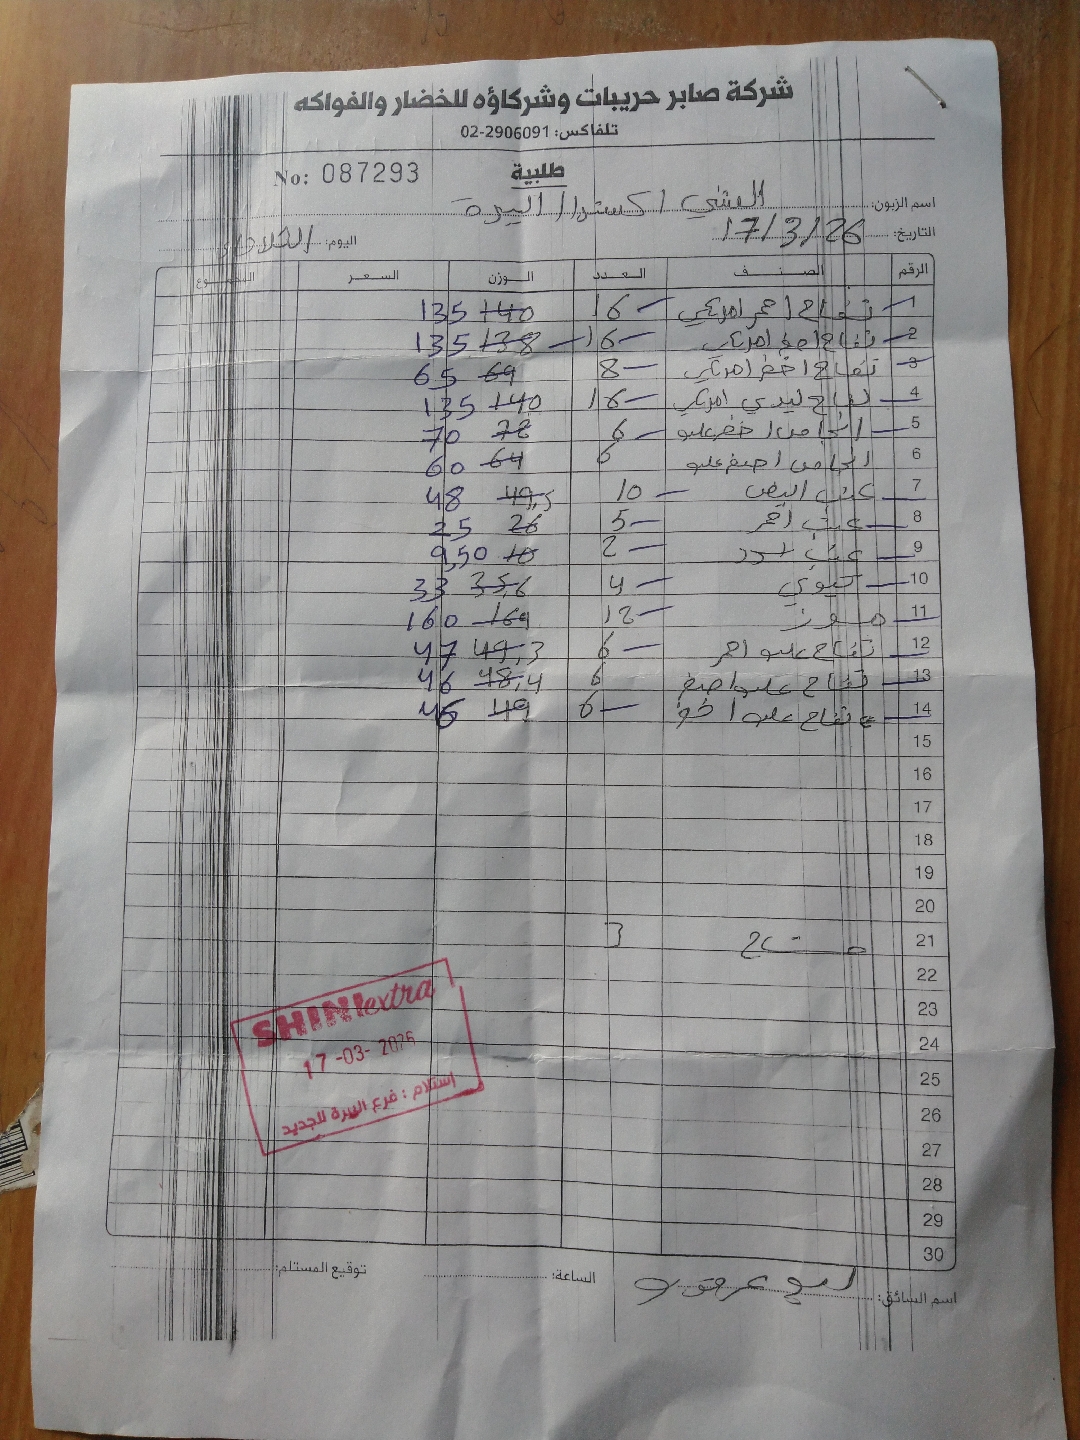 شركة صابر حريبات وشركاؤه للخضار والفواكه
تلفاكس: 02-2906091
طلبية
No: 087293
اسم الزبون: الشني اكسترا / البيرة
التاريخ: 17/3/26 اليوم: الثلاثاء
الرقم الصنف العدد الوزن السعر المجموع
1 تفاح احمر امريكي 16 140 135
2 تفاح اصفر امريكي 16 138 135
3 تفاح اخضر امريكي 8 69 65
4 تفاح ليدي امريكي 16 140 135
5 انجاص اخضر عليو 6 72 70
6 انجاص اصفر عليو 6 64 60
7 عنب ابيض 10 49,5 48
8 عنب احمر 5 26 25
9 عنب اسود 2 10 9,50
10 كيوي 4 35,6 33
11 موز 12 169 160
12 تفاح عليو احمر 6 49,3 47
13 تفاح عليو اصفر 6 48,4 46
14 تفاح عليو اخضر 6 49 46
15
16
17
18
19
20
21 3
22
23
24
25
26
27
28
29
30
SHINI extra
17-03-2026
إستلام : فرع البيرة الجديد
اسم السائق: الساعة: توقيع المستلم: